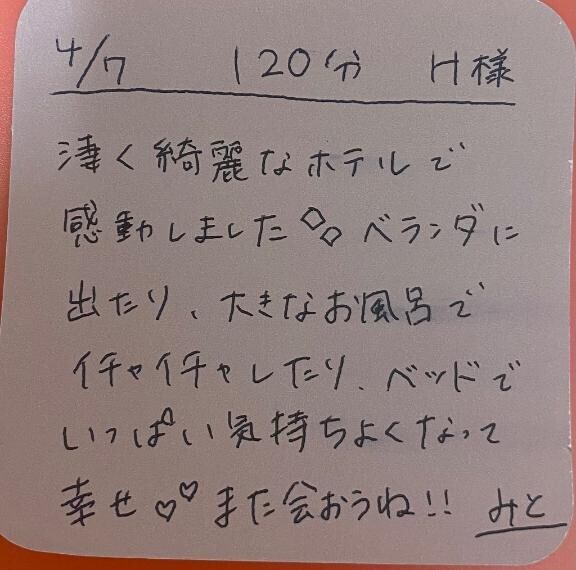 4/7 120分 H様
凄く綺麗なホテルで
感動しました◇◇ ベランダに
出たり、大きなお風呂で
イチャイチャしたり、ベッドで
いっぱい気持ちよくなって
幸せ♡♡ また会おうね!! みと